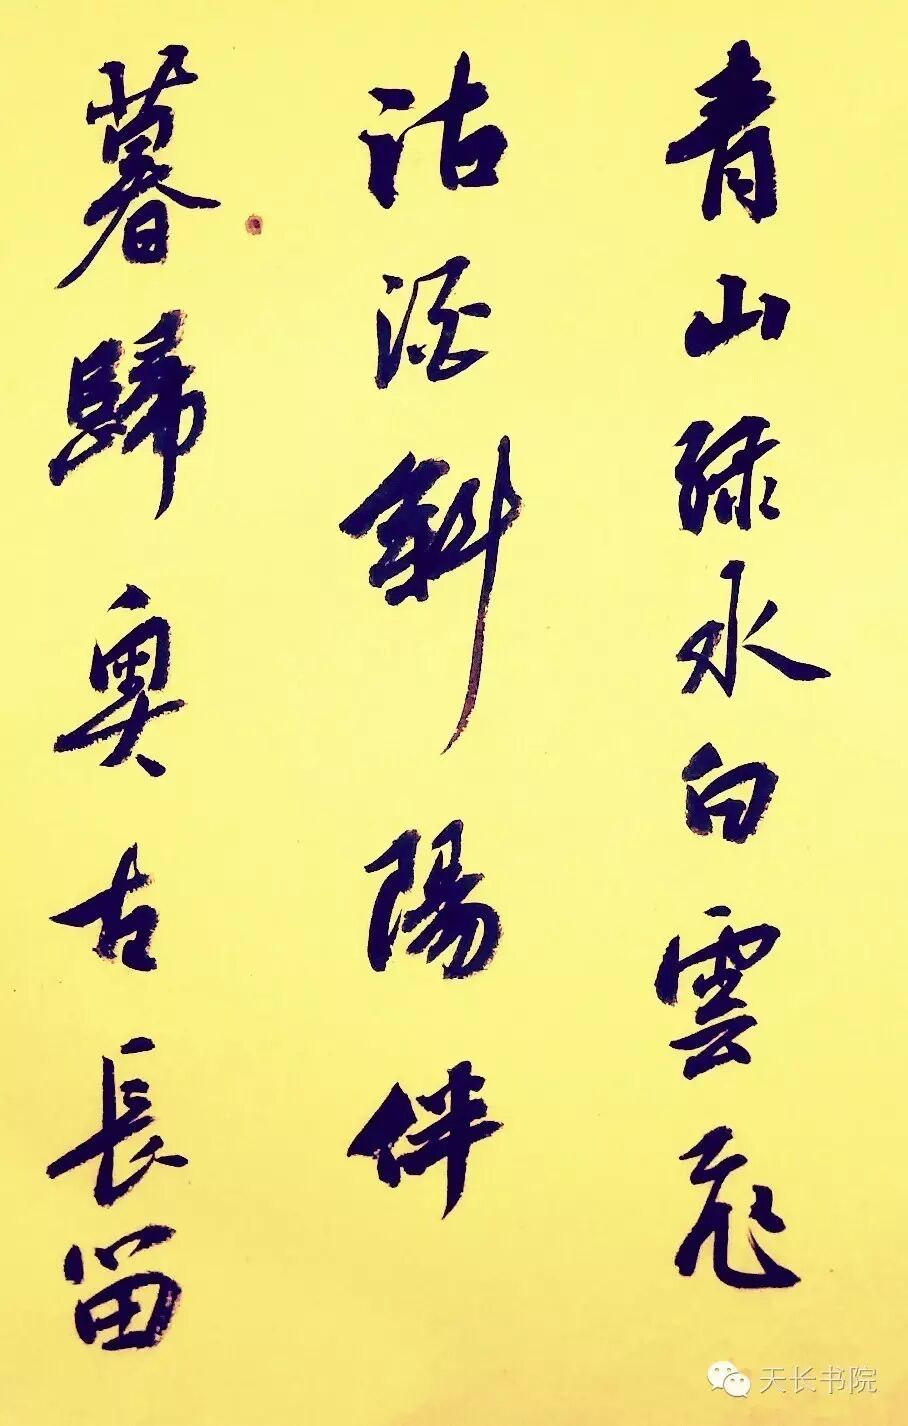 青山绿水白雲飛
沽酒斜陽伴
暮歸奥古長留
天长书院